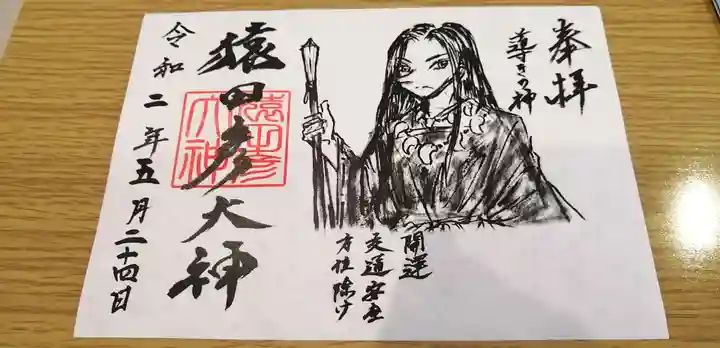 奉拝
導きの神
開運
交通安全
方位除け
猿田彦大神
猿田彦
大神
令和二年五月二十四日